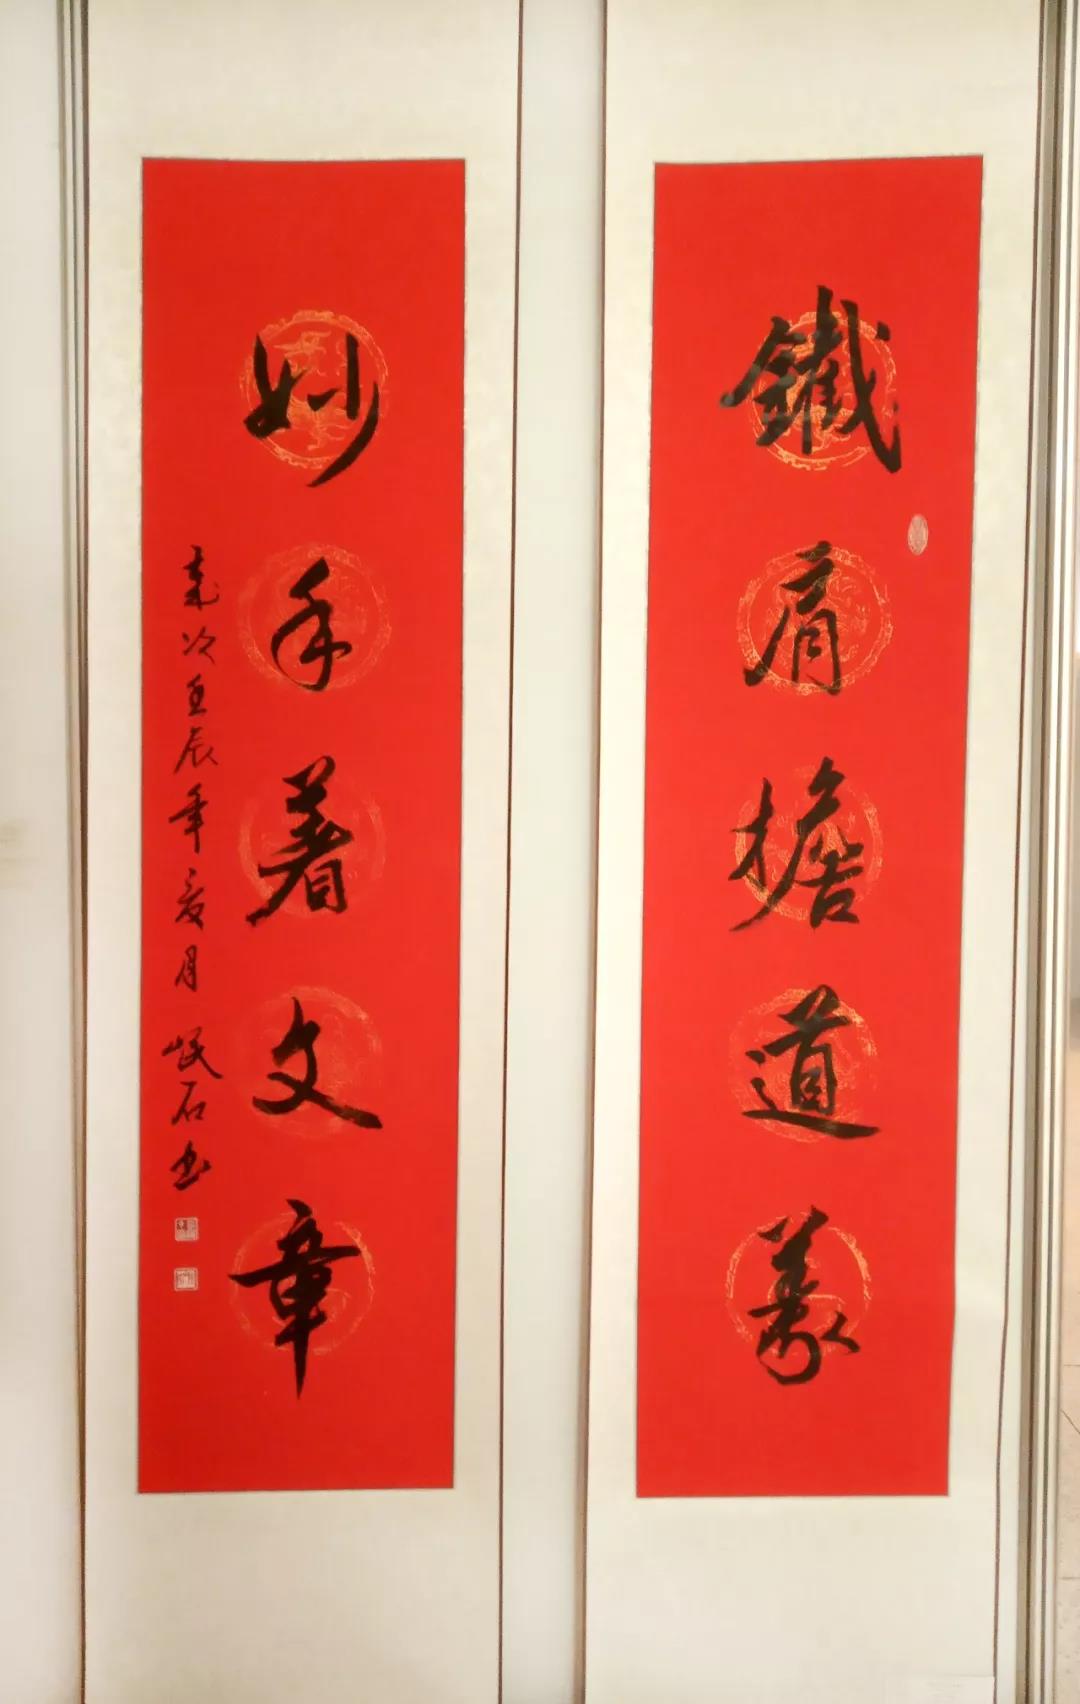 鐵肩擔道義
妙手着文章
歲次壬辰年夏月 岷石書